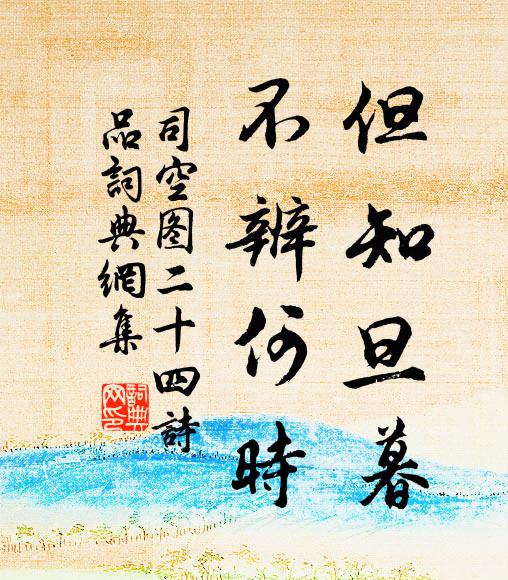 但知旦暮
不辨何時
司空图二十四詩
品詞典網集
詞典
网印